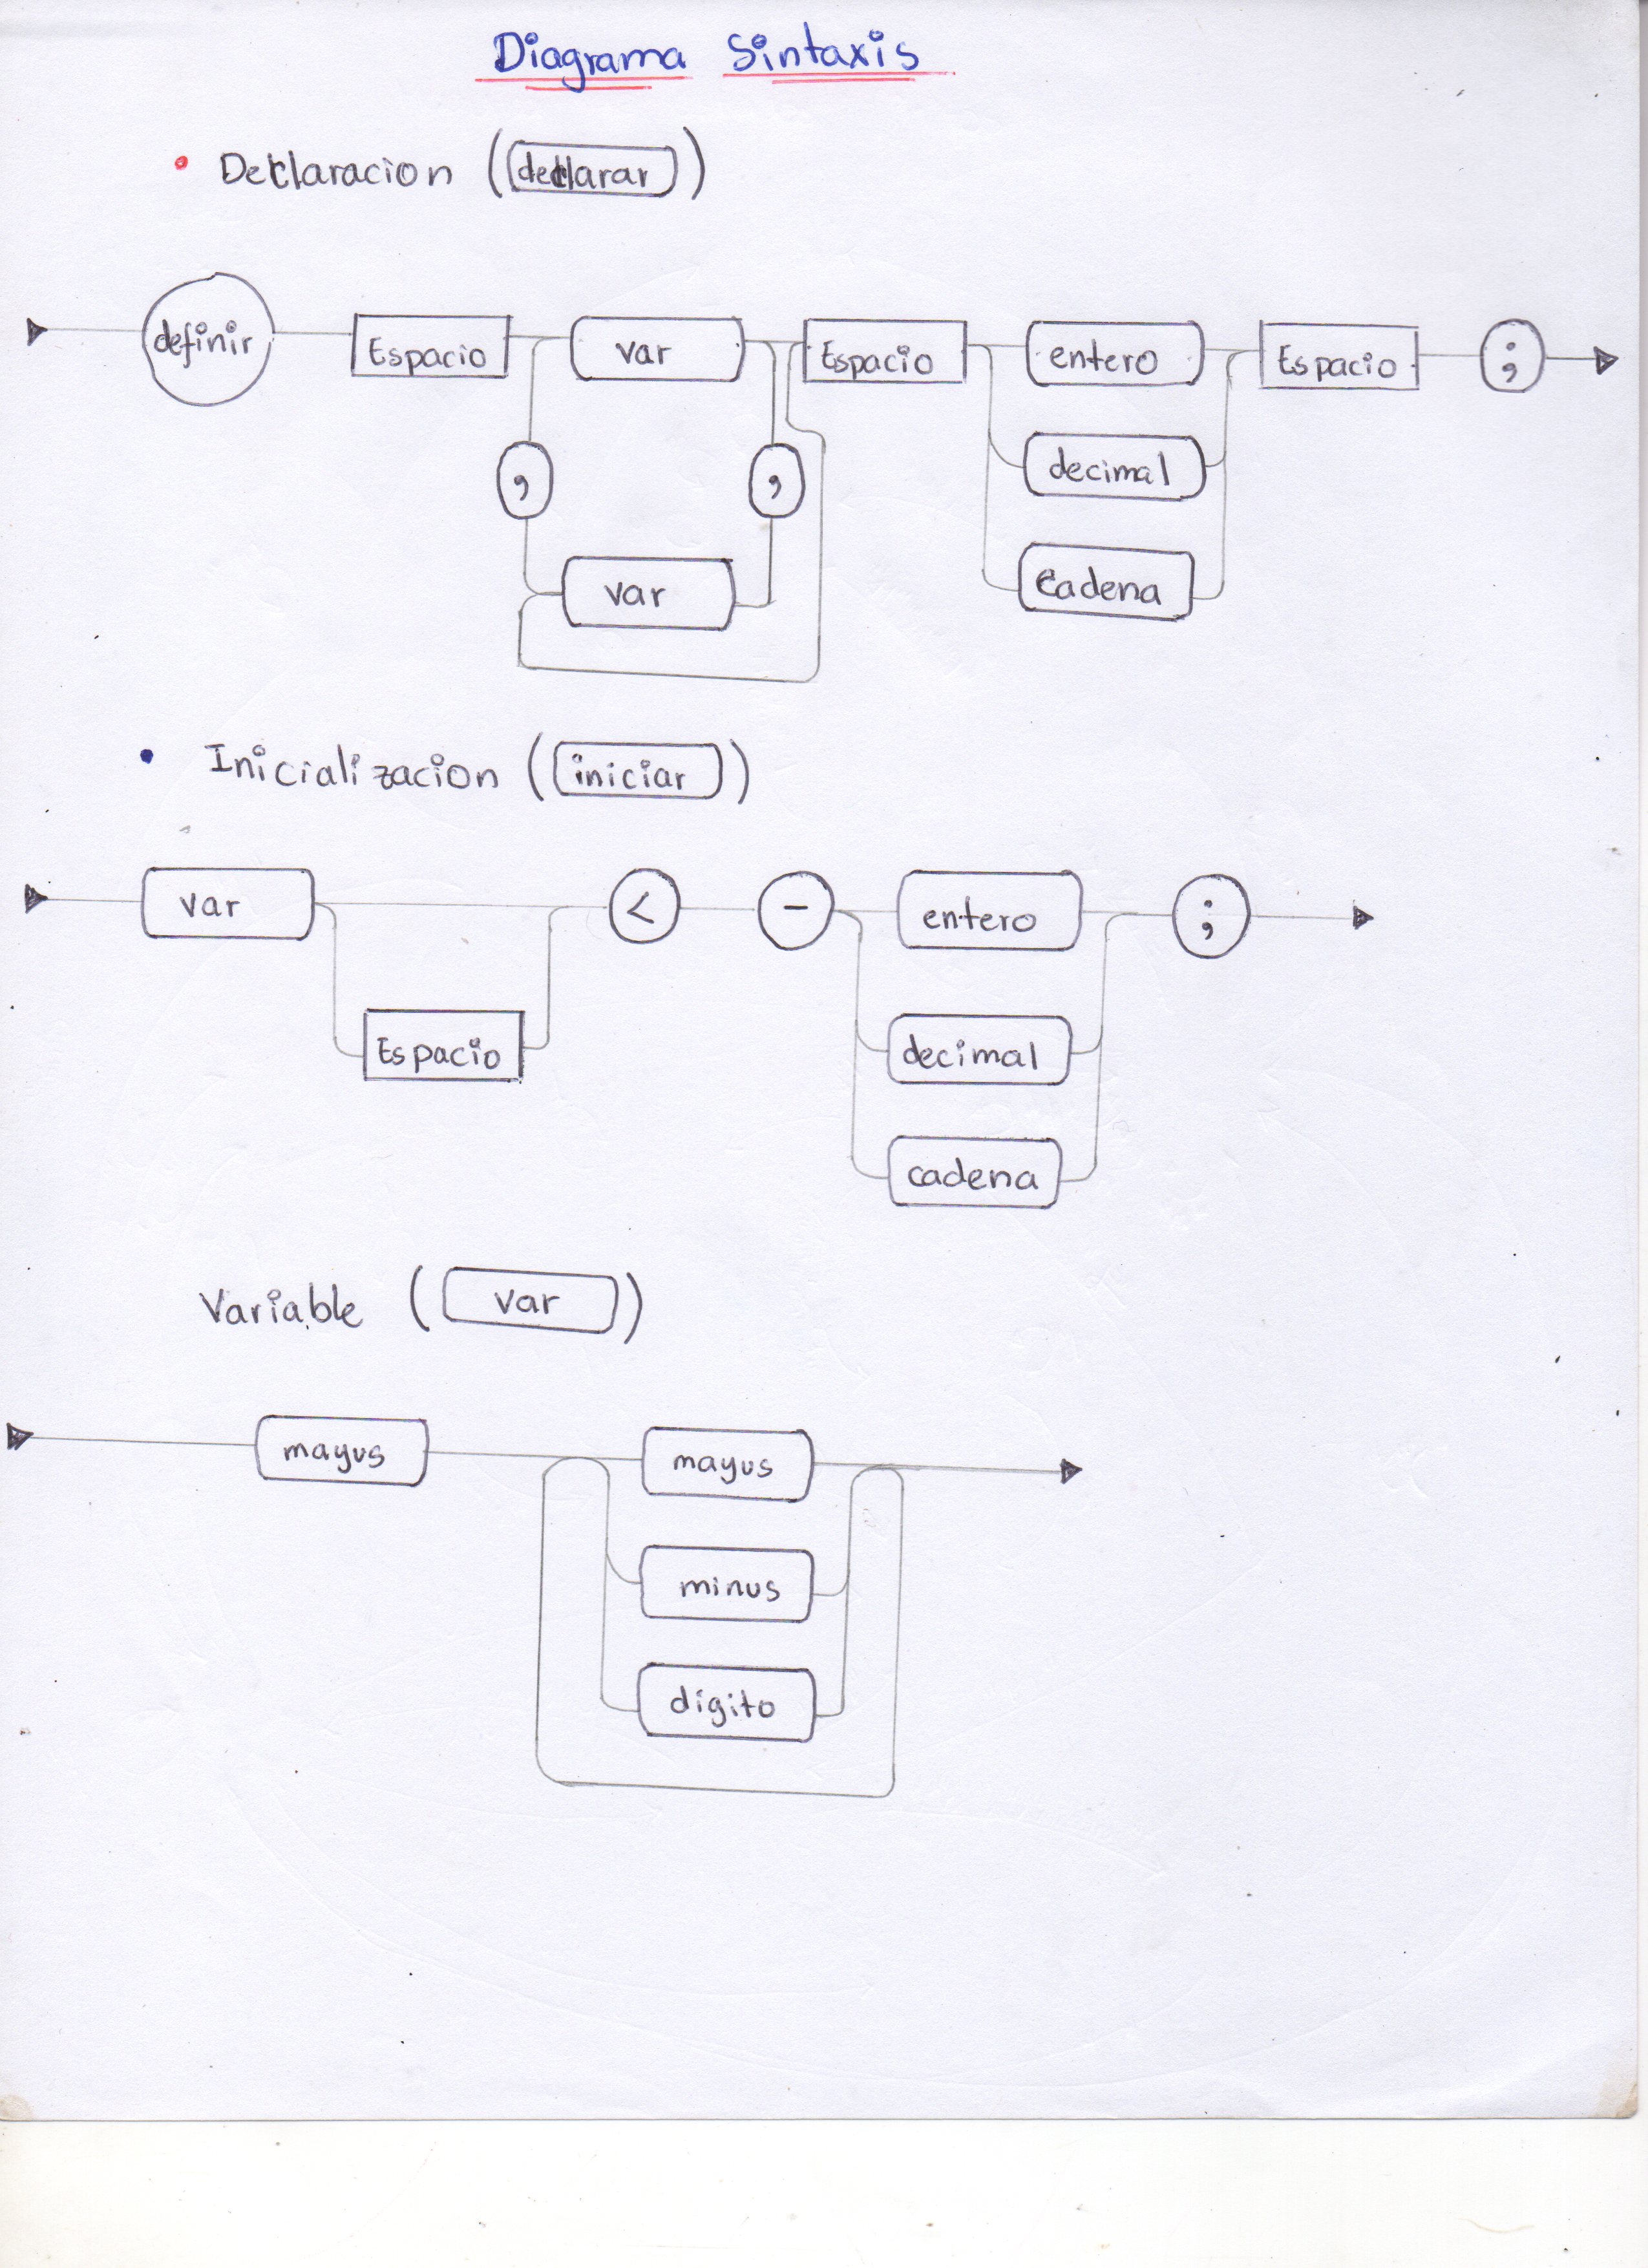 Diagrama Sintaxis
Declaracion (declarar)
definir Espacio var Espacio entero Espacio ;
, , decimal
var Cadena
Inicializacion (iniciar)
var < - entero ;
Espacio decimal
cadena
Variable (var)
mayus mayus
minus
digito